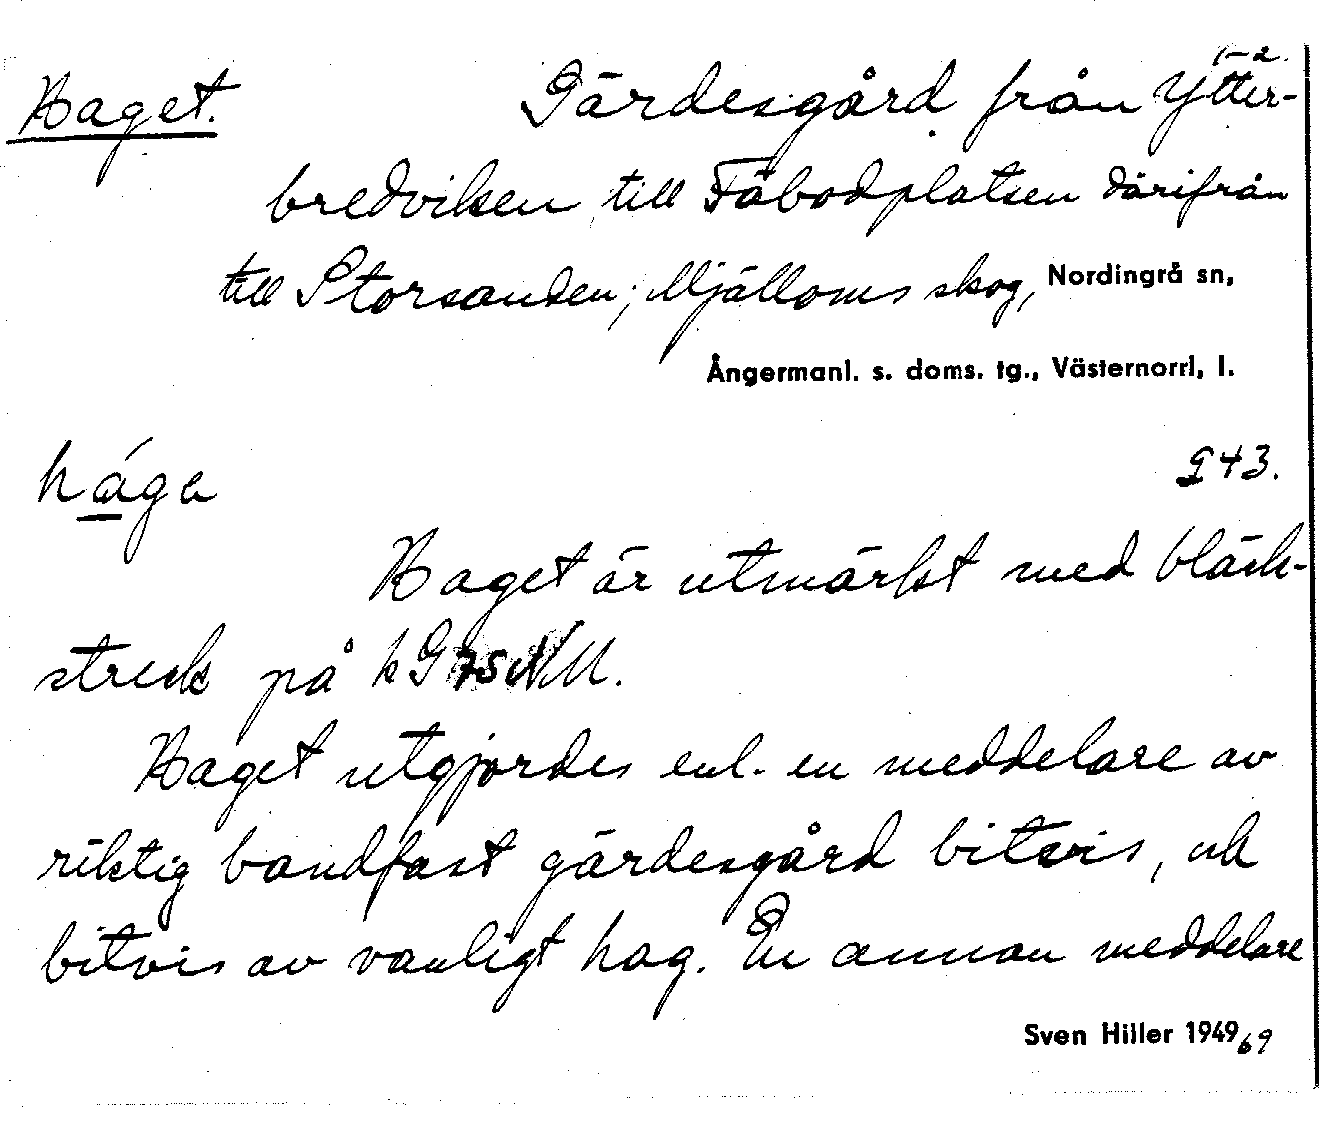 1-2.
Haget. Gärdesgård från Ytter-
bredviken till Fäbodplatsen därifrån
till Storsanden; Mjälloms skog, Nordingrå sn,
Ångermanl. s. doms. tg., Västernorrl. l.
håga 943.
Haget är utmärkt med bläck-
streck på
Haget utgjordes enl. en meddelare av
riktig bandfast gärdesgård bitvis, och
bitvis av vanligt hag. En annan meddelare
Sven Hiller 1949, 69